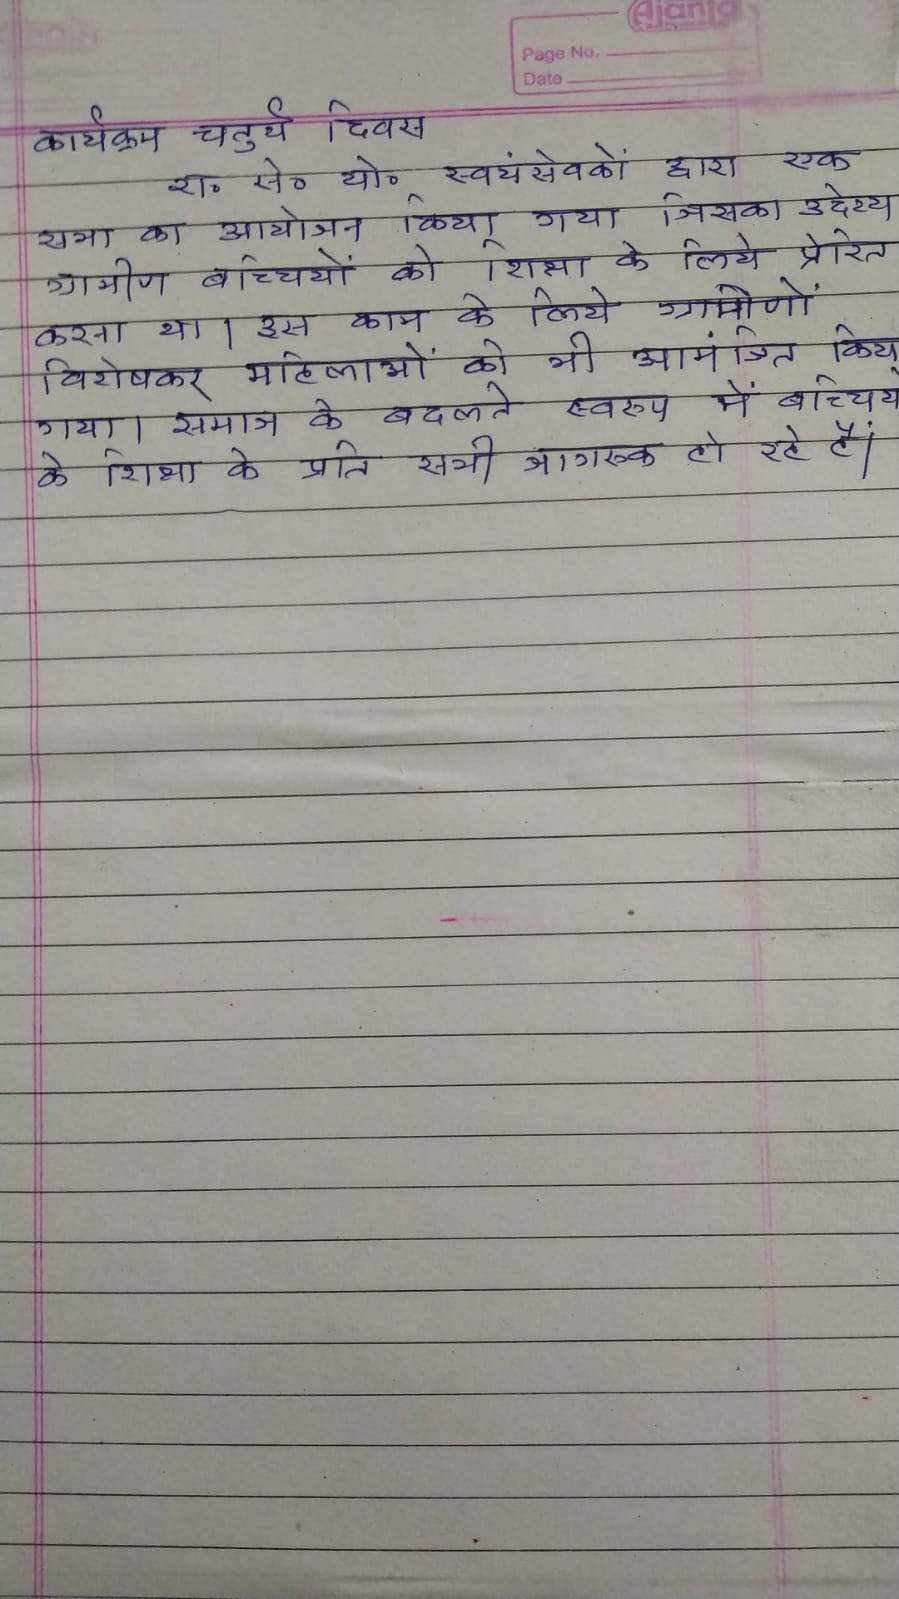 Ajanta
Page No.
Date
कार्यक्रम चतुर्थ दिवस
रा० से० यो० स्वयंसेवकों द्वारा एक
सभा का आयोजन किया गया जिसका उदेश्य
ग्रामीण बच्चियों को शिक्षा के लिये प्रेरित
करना था। इस काम के लिये ग्रामीणों
विशेषकर महिलाओं को भी आमंत्रित किया
गया। समाज के बदलते स्वरुप में बच्चिय
के शिक्षा के प्रति सभी जागरुक हो रहे हैं।